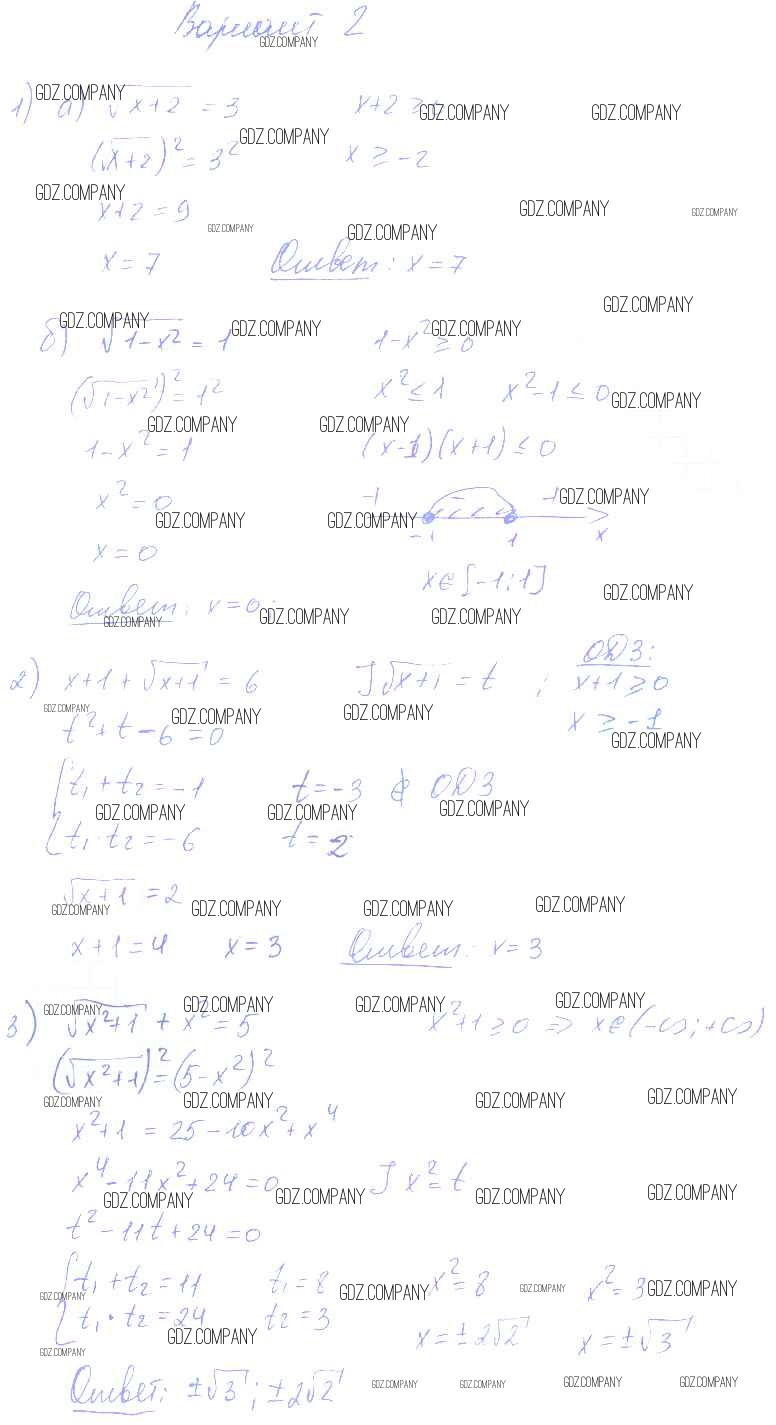 Вариант 2
1) а) √(x+2) = 3    x+2 ≥ 0
(√(x+2))² = 3²    x ≥ -2
x+2 = 9
x = 7    Ответ: x = 7
б) √(1-x²) = 1    1-x² ≥ 0
(√(1-x²))² = 1²    x² ≤ 1    x²-1 ≤ 0
1-x² = 1    (x-1)(x+1) ≤ 0
x² = 0
-1    -    -1
x = 0    -1    1    x
x∈[-1;1]
Ответ: x = 0.
2) x+1+√(x+1) = 6    ] √(x+1) = t ;    ОДЗ:
x+1 ≥ 0
t²+t-6 = 0    x ≥ -1
{ t₁+t₂ = -1    t = -3 ∉ ОДЗ
{ t₁·t₂ = -6    t = 2
√(x+1) = 2
x+1 = 4    x = 3    Ответ: x = 3
3) √(x²+1) + x² = 5    x²+1 ≥ 0 ⇒ x∈(-∞;+∞)
(√(x²+1))² = (5-x²)²
x²+1 = 25-10x²+x⁴
x⁴-11x²+24 = 0    ] x² = t
t²-11t+24 = 0
{ t₁+t₂ = 11    t₁ = 8    x² = 8    x² = 3
{ t₁·t₂ = 24    t₂ = 3
x = ±2√2    x = ±√3
Ответ: ±√3 ; ±2√2
GDZ.COMPANY